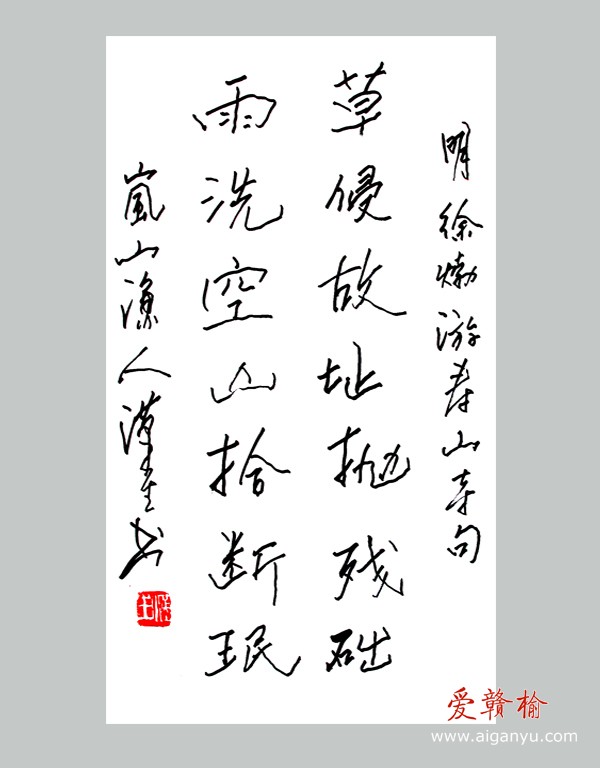 明徐𤊹游寿山寺句
草侵故址抛残础
雨洗空山拾断珉
嵐山漁人漢生书
爱赣榆
www.aiganyu.com